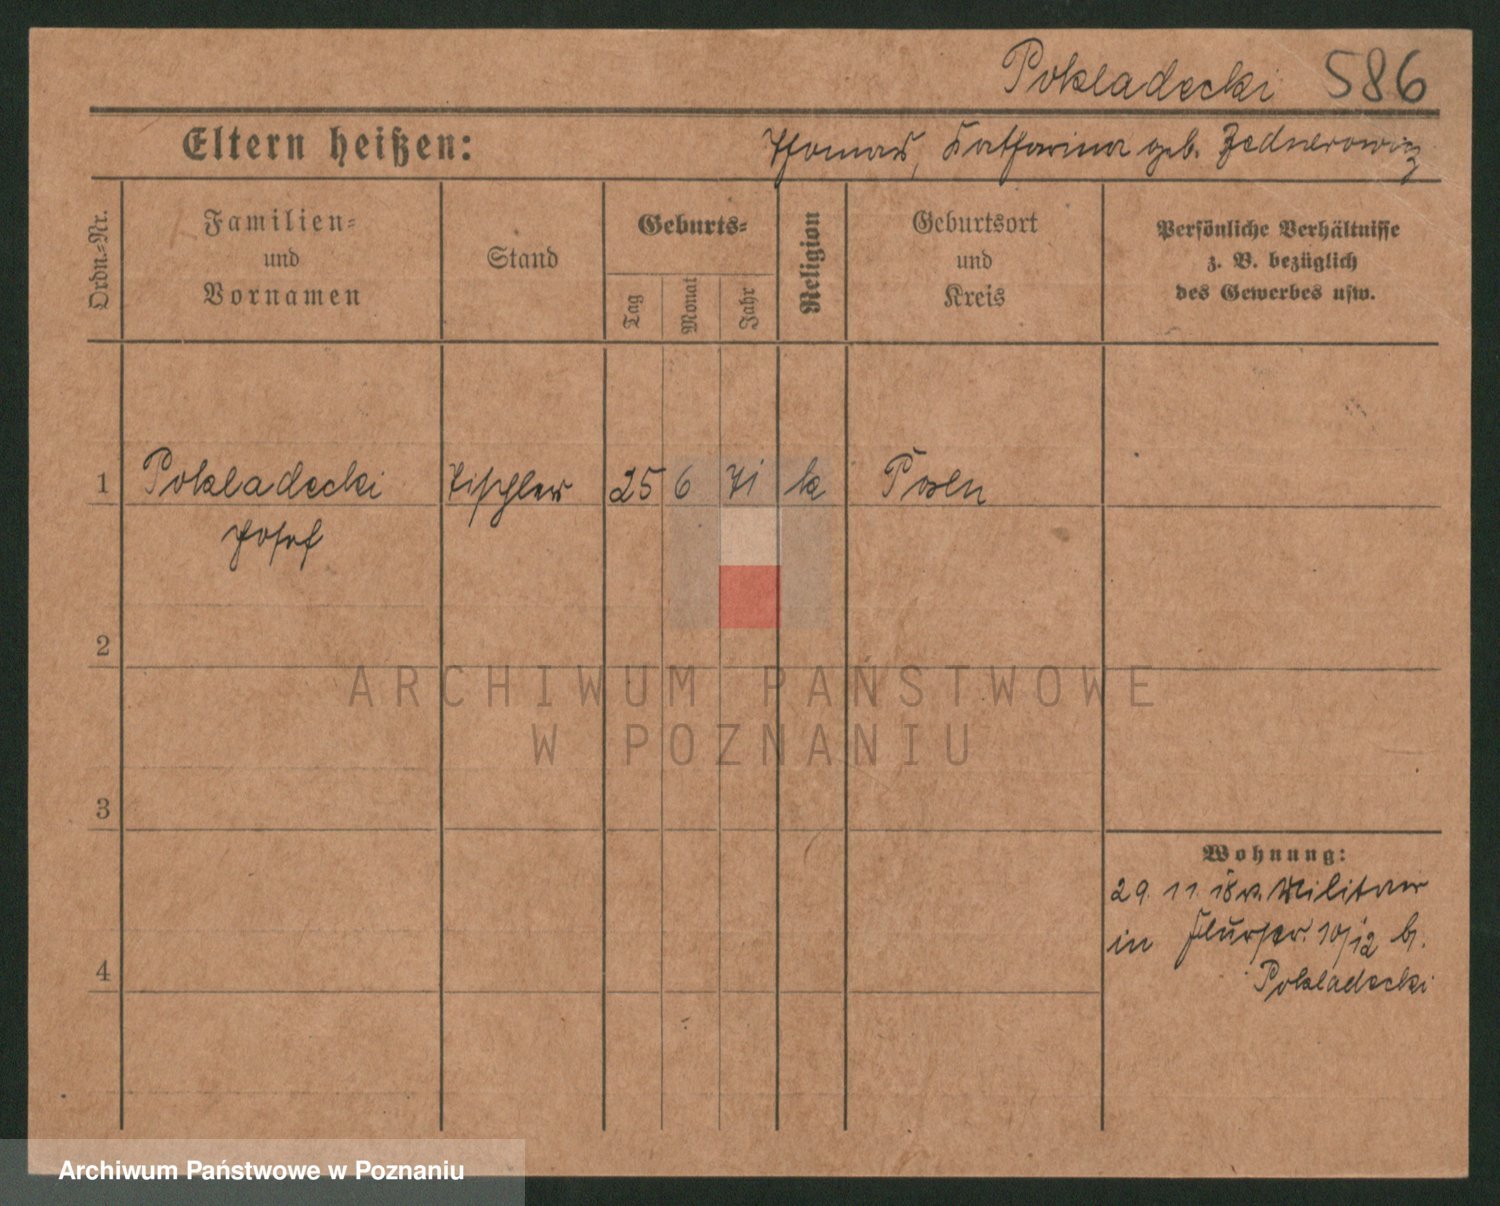 Pokladecki 586
Eltern heißen: Thomas, Katharina geb. Zednerowicz
Ordn.-Nr.
Familien-
und
Vornamen
Stand
Geburts-
Tag
Monat
Jahr
Religion
Geburtsort
und
Kreis
Persönliche Verhältnisse
z. B. bezüglich
des Gewerbes usw.
1 Pokladecki Tischler 25 6 71 k Posen
Josef
2
3
4
ARCHIWUM PAŃSTWOWE
W POZNANIU
Wohnung:
29. 11. 18 v. Militär
in 10/12 b.
Pokladecki
Archiwum Państwowe w Poznaniu